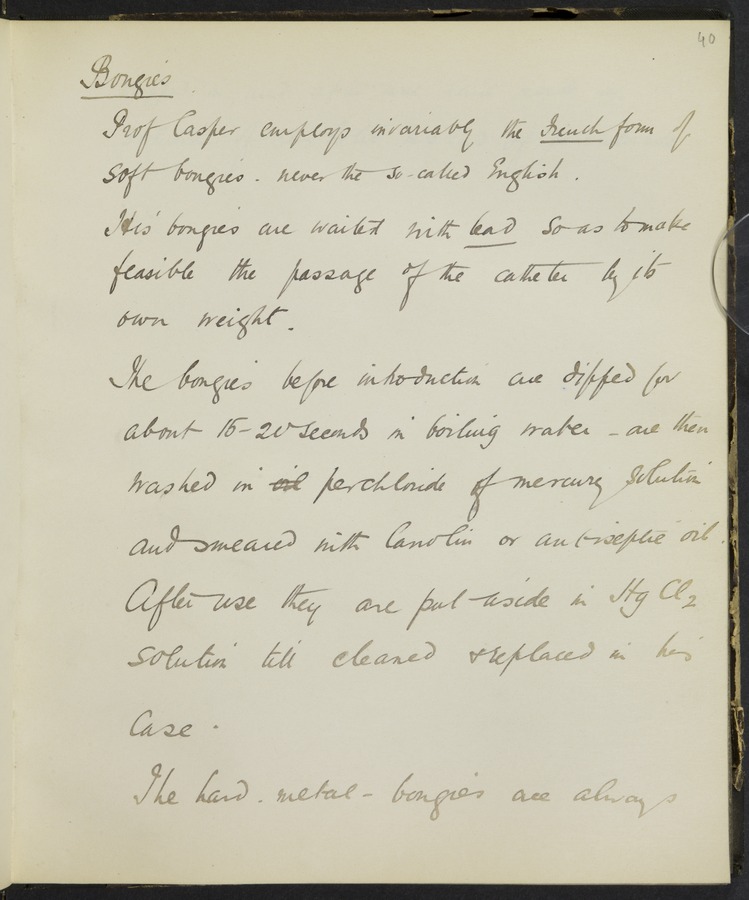 40
Bougies
Prof Casper employs invariably the French form of
soft bougies - never the so-called English.
His bougies are waited with lead so as to make
feasible the passage of the catheter by its
own weight.
The bougies before introduction are dipped for
about 15-20 seconds in boiling water - are then
washed in oil perchloride of mercury solution
and smeared with lanolin or antiseptic oil.
After use they are put aside in Hg Cl2
solution till cleaned & replaced in his
case.
The hard - metal - bougies are always